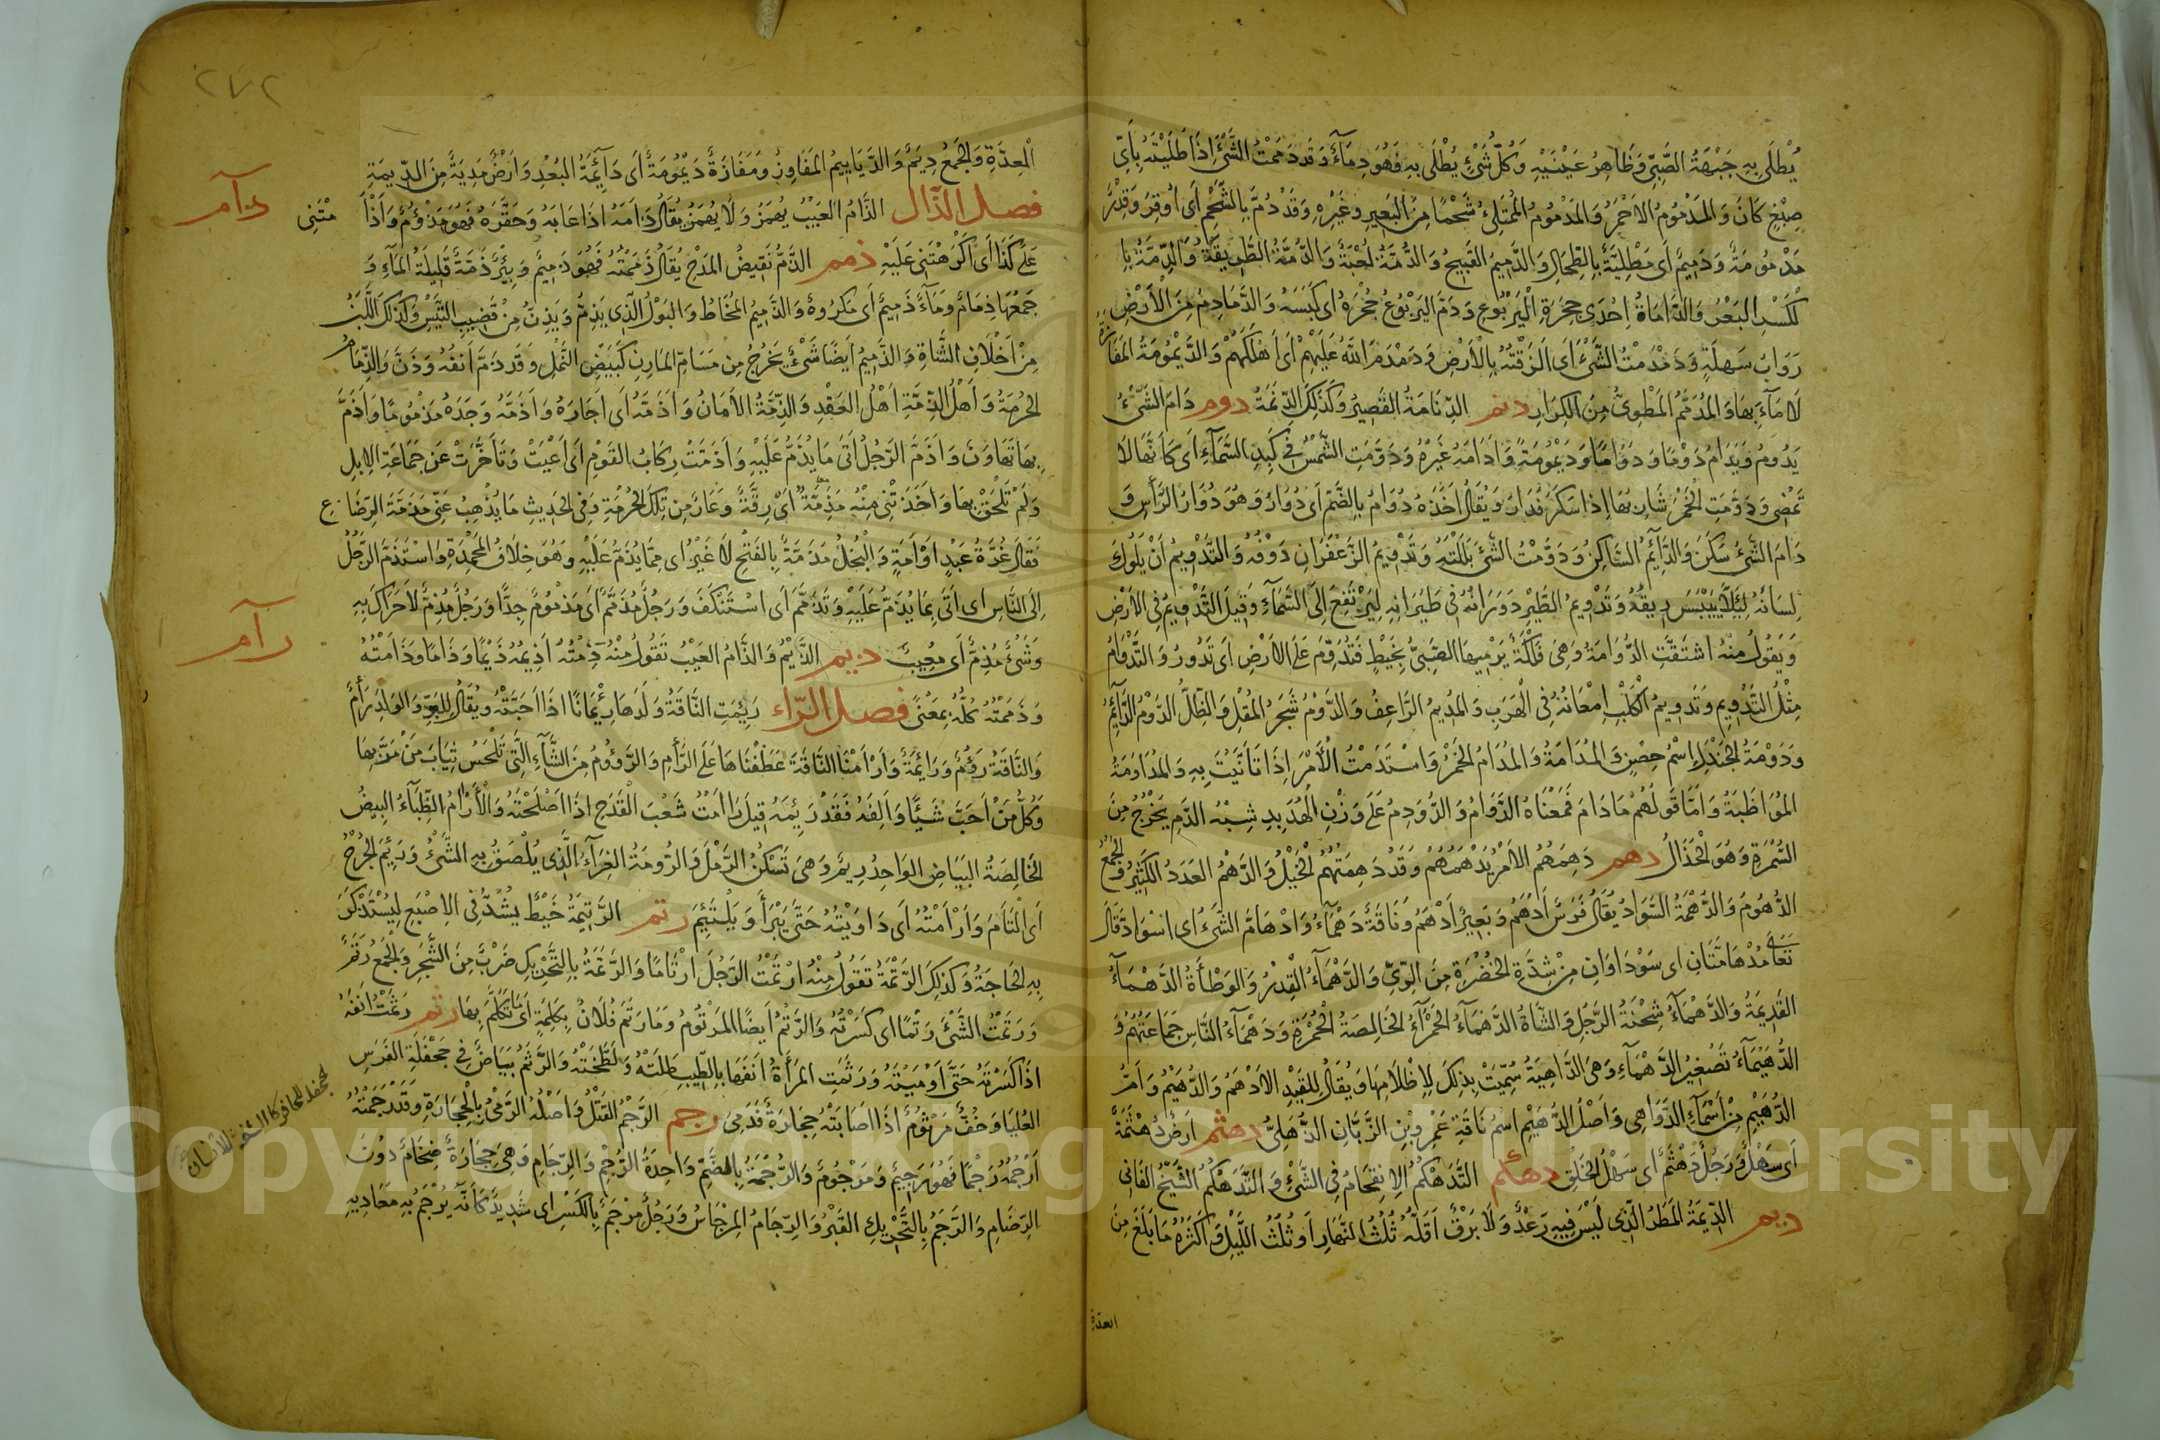 يُطْلَى بِهِ جَبْهَةُ الصَّبِيِّ وَظَاهِرُ عَيْنَيْهِ وَكُلُّ شَيْءٍ يُطْلَى بِهِ فَهُوَ دِمَآءٌ وَقَد دَمَمْتُ الشَّيْءَ اِذَا طَلَيْتَهُ بِاَيِّ
صِبْغٍ كَانَ وَالمَدْمُومُ الاَحْمَرُ وَالمَدْمُومُ المُمْتَلِئُ شَحْمًا مِنَ البَعِيرِ وَغَيْرِهِ وَقَدْ دُمَّ بِالشَّحْمِ اَى اُوقِرَ وَقِدْرٌ
مَدْمُومَةٌ وَدَمِيمٌ اَى مَطْلِيَّةٌ بِالطِّحَالِ وَالدَّمِيمُ القَبِيحُ وَالدُّمَّةُ لُعْبَةٌ وَالدُّمَّةُ الطَّرِيقَةُ وَالدِّمَّةُ بِا
لْكَسْرِ البَعْرُ وَالدَّامَّاءُ اِحْدَى جِحَرَةِ الْيَرْبُوعِ وَدَمَّ اليَرْبُوعُ جُحْرَهُ اى كَبَسَهُ وَالدَّمَادِمُ مِنَ الْاَرْضِ
رَوَابٍ سَهلَةٍ وَدَمْدَمْتُ الشَّيْءَ اَى اَلزَقْتُهُ بِالْاَرْضِ وَدَمْدَمَ اللَّهُ عَلَيْهِمْ اَى اَهْلَكَهُمْ وَالدَّيْمُومَةُ المَفَازَةُ
لَا مَآءَ بِهَا وَالمُدَمَّمُ المَطْوِىُّ مِنَ الكِرَارِ دنم الدِّنَّامَةُ القَصِيرُ وَكَذَلِكَ الدِّنَّمَةُ دوم دَامَ الشَّىْءُ
يَدُومُ وَيَدَامُ دَوْمًا وَدَوَامًا وَدَيْمُومَةً وَاَدَامَهُ غَيْرُهُ وَدَوَّمَتِ الشَّمْسُ فِى كَبِدِ السَّمَآءِ اَى كَاَنَّهَا لَا
تَمْضِى وَدَوَّمَتِ الْخَمْرُ شَارِبَهَا اِذَا سَكِرَ فَدَارَ وَيُقَالُ اَخَذَهُ دُوَامٌ بِالضَّمِّ اَى دُوَارٌ وَهُوَ دُوَارُ الرَّأْسِ وَ
دَامَ الشَّيْءُ سَكَنَ وَالدَّائِمُ السَّاكِنُ وَدَوَّمْتُ الشَّىْءَ بَلَلْتُهُ وَتَدْوِيمُ الزَّعْفَرَانِ دَوْفُهُ وَالتَّدْوِيمُ اَنْ يَلُوكَ
لِسَانَهُ لِئَلَّا يَيْبَسَ رِيقُهُ وَتَدْوِيمُ الطَّيْرِ دَوَرَانُهُ فِى طَيَرَانِهِ لِيَرْتَفِعَ اِلَى السَّمَآءِ وَقِيلَ التَّدْوِيمُ فِى الاَرْضِ
وَيَقُولُ مِنْهُ اشتَقَّتِ الدُّوَّامَةُ وَهِىَ فَلْكَةٌ يَرْمِيهَا الصَّبِىُّ بِخَيْطٍ فَتُدَوِّمُ عَلَى الاَرْضِ اَى تَدُورُ وَالتَّدْوَامُ
مِثْلُ التَّدْوِيمِ وَتَدْوِيمُ الْكَلْبِ اِمْعَانُهُ فِى الْهَرَبِ وَالمُدِيمُ الرَّاعِفُ وَالدَّوْمُ شَجَرُ المُقْلِ وَالظِّلُّ الدَّوْمُ الدَّآئِمُ
وَدَوْمَةُ الجَنْدَلِ اسْمُ حِصْنٍ وَالمُدَامَةُ وَالمُدَامُ الخَمْرُ وَاسْتَدَمْتُ الْاَمْرَ اِذَا تَاَنَّيْتَ بِهِ وَالمُدَاوَمَةُ
المُوَاظَبَةُ وَاَمَّا قَولُهُمْ مَا دَامَ فَمَعْنَاهُ الدَّوَامُ وَالدُّوَدِمُ عَلَى وَزْنِ الهُدَبِدِ شِبْهُ الدَّمِ يَخْرُجُ مِنَ
السَّمُرَةِ وَهُوَ الْحَذَالُ دهم دَهِمَهُمُ الاَمْرُ يَدْهَمُهُمْ وَقَدْ دَهِمَتْهُمُ الْخَيْلُ وَالدَّهْمُ العَدَدُ الكَثِيْرُ وَالجَمْعُ
الدُّهُومُ وَالدُّهْمَةُ السَّوَادُ يُقَالُ فَرَسٌ اَدْهَمُ وَبَعِيرٌ اَدْهَمُ وَنَاقَةٌ دَهْمَآءُ وَادْهَامَّ الشَّىْءُ اى اسْوَادَّ قَالَ
تَعَالَى مُدْهَامَّتَانِ اى سَوْدَاوَانِ مِنْ شِدَّةِ الخُضْرَةِ مِنَ الرِّىِّ وَالدَّهْمَآءُ الْقِدْرُ وَالوَطْأَةُ الدَّهْمَآءُ
القَدِيمَةُ وَالدَّهْمَآءُ سَحْنَةُ الرَّجُلِ وَالشَّاةُ الدَّهْمَآءُ الحَمْرَآءُ الخَالِصَةُ الْحُمْرَةِ وَدَهْمَآءُ النَّاسِ جَمَاعَتُهُمْ وَ
الدُّهَيْمَآءُ تَصْغِيرُ الدَّهْمَآءِ وَهِىَ الدَّاهِيَةُ سُمِّيَتْ بِذَلِكَ لِاِظْلَامِهَا وَيُقَالُ لِلقَيْدِ الاَدْهَمُ وَالدُّهَيْمُ وَاُمُّ
الدُّهَيْمِ مِنْ اَسْمَآءِ الدَّوَاهِى وَاَصْلُ الدُّهَيْمِ اسْمُ نَاقَةِ عَمْرِو بْنِ الزَّبَّانِ الذُّهْلِىِّ دهثم اَرْضٌ دَهْثَمَةٌ
اَى سَهْلَةٌ وَرَجُلٌ دَهْثَمٌ اى سَهْلُ الخُلُقِ دهكم التَّدَهْكُمُ الِانقِحَامُ فِى الشَّىْءِ وَالدَّهْكَمُ الشَّيْخُ الفَانِى
ديم الدِّيْمَةُ المَطَرُ الَّذِى لَيْسَ فِيهِ رَعْدٌ وَلَا بَرْقٌ اَقَلُّهُ ثُلُثُ النَّهَارِ اَوْ ثُلُثُ اللَّيْلِ وَاَكْثَرُهُ مَا بَلَغَ مِنَ
العدة
٢٧٢
الْعِدَّةِ وَالجَمْعُ دِيَمٌ وَالدَّيَامِيمُ المَفَاوِزُ وَمَفَازَةٌ دَيْمُومَةٌ اَى دَآئِمَةُ البُعْدِ وَاَرْضٌ مَدِيمَةٌ مِنَ الدِّيمَةِ
فصل الذال الذَّامُ العَيْبُ يُهمَزُ وَلَا يُهمَزُ يُقَالُ ذَاَمَهُ اِذَا عَابَهُ وَحَقَّرَهُ فَهُوَ مَذْؤُمٌ وَاَذْاَمْتَنِى
ذءام
عَلَى كَذَا اَى اَكْرَهْتَنِى عَلَيْهِ ذمم الذَّمُّ نَقِيضُ المَدْحِ يُقَالُ ذَمَمْتُهُ فَهُوَ ذَمِيمٌ وَبِئْرٌ ذَمَّةٌ قَلِيلَةُ المَآءِ وَ
جَمْعُهَا ذِمَامٌ وَمَآءٌ ذَمِيمٌ اَى مَكرُوهٌ وَالذَّمِيمُ المُخَاطُ وَالبَوْلُ الَّذِى يَذِمُّ وَيَذِنُّ مِنْ قَضِيبِ التَّيْسِ وَكَذَلِكَ اللَّبَنُ
مِنْ اَخْلَافِ الشَّاةِ وَالذَّمِيمُ اَيضًا شَىْءٌ يَخْرُجُ مِن مَسَامِّ المَارِنِ كَبَيْضِ النَّمْلِ وَقَد ذَمَّ اَنفُهُ وَذَنَّ وَالذِّمَامُ
الحُرمَةُ وَاَهْلُ الذِّمَّةِ اَهْلُ العَقْدِ وَالذِّمَّةُ الاَمَانُ وَاَذَمَّهُ اَى اَجَارَهُ وَاَذَمَّهُ وَجَدَهُ مَذْمُومًا وَاَذَمَّ
بِهَا تَهَاوَنَ وَاَذَمَّ الرَّجُلُ اَتَى مَا يُذَمُّ عَلَيْهِ وَاَذَمَّتْ رِكَابُ القَوْمِ اَى اَعْيَتْ وَتَأَخَّرَتْ عَنْ جَمَاعَةِ الاِبِلِ
وَلَمْ تَلْحَقْ بِهَا وَاَخَذَتْنِى مِنْهُ مَذِمَّةٌ اَىْ رِقَّةٌ وَعَارٌ مِن تِلْكَ الحُرْمَةِ وَفِى الحَدِيثِ مَا يُذْهِبُ عَنِّى مَذِمَّةَ الرِّضَاعِ
فَقَالَ غُرَّةٌ عَبْدٍ اَوْ اَمَةٍ وَالْبُخلُ مَذَمَّةٌ بِالفَتْحِ لَا غَيْرُ اى مِمَّا يُذَمُّ عَلَيْهِ وَهُوَ خِلَافُ المَحْمَدَةِ وَاسْتَذَمَّ الرَّجُلُ
اِلَى النَّاسِ اَى اَتَى بِمَا يُذَمُّ عَلَيْهِ وَتَذَمَّمَ اَى اسْتَنْكَفَ وَرَجُلٌ مُذَمَّمٌ اَى مَذْمُومٌ جِدًّا وَرَجُلٌ مُذِمٌّ لَا حَرَاكَ بِهِ
وَشَىْءٌ مُذِمٌّ اَى مَعِيبٌ ذيم الذَّيْمُ وَالذَّامُ العَيْبُ تَقُولُ مِنْهُ ذِمْتُهُ اَذِيمُهُ ذَيْمًا وَذَامًا وَذَاَمْتُهُ
رءام
وَذَمَمْتُهُ كُلُّهُ بِمَعْنًى فصل الراء رَئِمَتِ النَّاقَةُ وَلَدَهَا رِئْمَانًا اِذَا اَحَبَّتْهُ وَيُقَالُ لِلبَوِّ وَالوَلَدِ رَأْمٌ
وَالنَّاقَةُ رَؤُمٌ وَرَائِمَةٌ وَاَرْاَمْنَا النَّاقَةَ عَطَفْنَاهَا عَلَى الرَّأْمِ وَالرَّؤُومُ مِنَ الشَّآءِ الَّتِى تَلْحَسُ ثِيَابَ مَنْ مَرَّ بِهَا
وَكُلُّ مَنْ اَحَبَّ شَيْئًا وَاَلِفَهُ فَقَدْ رَئِمَهُ قِيلَ رَاَمْتُ شَعْبَ الْقَدَحِ اِذَا اَصْلَحْتَهُ وَالْاَرْآمُ الظِّبَآءُ البِيضُ
الخَالِصَةُ البَيَاضِ الوَاحِدُ رِيمٌ وَهِىَ تَسْكُنُ الرَّمْلَ وَالرُّومَةُ الغِرَآءُ الَّذِى يُلْصَقُ بِهِ الشَّىْءُ وَرَئِمَ الجُرْحُ
اَى الْتَاَمَ وَاَرْاَمْتُهُ اَى دَاوَيْتُهُ حَتَّى يَبْرَأَ وَيَلْتَئِمَ رتم الرَّتِيمَةُ خَيْطٌ يُشَدُّ فِى الاِصْبَعِ لِيُسْتَذْكَرَ
بِهِ الحَاجَةُ وَكَذَلِكَ الرَّتْمَةُ تَقُولُ مِنْهُ اَرْتَمْتُ الرَّجُلَ اِرْتَامًا وَالرَّتَمَةُ بِالتَّحْرِيكِ ضَرْبٌ مِنَ الشَّجَرِ وَالجَمْعُ رَتَمٌ
وَرَتَمْتُ الشَّىْءَ رَتْمًا اى كَسَرْتُهُ وَالرَّتْمُ اَيضًا المَرْتُومُ وَمَا رَتَمَ فُلَانٌ بِكَلِمَةٍ اَى مَا تَكَلَّمَ بِهَا رثم رَثَمْتُ اَنفَهُ
اِذَا كَسَرْتَهُ حَتَّى اَدْمَيْتَهُ وَرَثَمَتِ المَرْاَةُ اَنفَهَا بِالطِّيبِ طَلَتْهُ وَلَطَّخَتْهُ وَالرَّثَمُ بَيَاضٌ فِى جَحْفَلَةِ الفَرَسِ
العُلْيَا وَخُفٌّ مَرْثُومٌ اِذَا اَصَابَتْهُ حِجَارَةٌ فَدَمِىَ رجم الرَّجْمُ القَتْلُ وَاَصْلُهُ الرَّمْىُ بِالْحِجَارَةِ وَقَدْ رَجَمْتُهُ
اَرْجُمُهُ رَجْمًا فَهُوَ رَجِيمٌ وَمَرْجُومٌ وَالرُّجْمَةُ بِالضَّمِّ وَاحِدَةُ الرُّجَمِ وَالرِّجَامِ وَهِىَ حِجَارَةٌ ضِخَامٌ دُونَ
الرِّضَامِ وَالرَّجَمُ بِالتَّحْرِيكِ القَبْرُ وَالرِّجَامُ المِرْجَاسُ وَرَجُلٌ مِرْجَمٌ بِالكَسْرِ اى شَدِيدٌ كَاَنَّهُ يُرْجَمُ بِهِ مَعَادِيهِ
Copyright © King Saud University